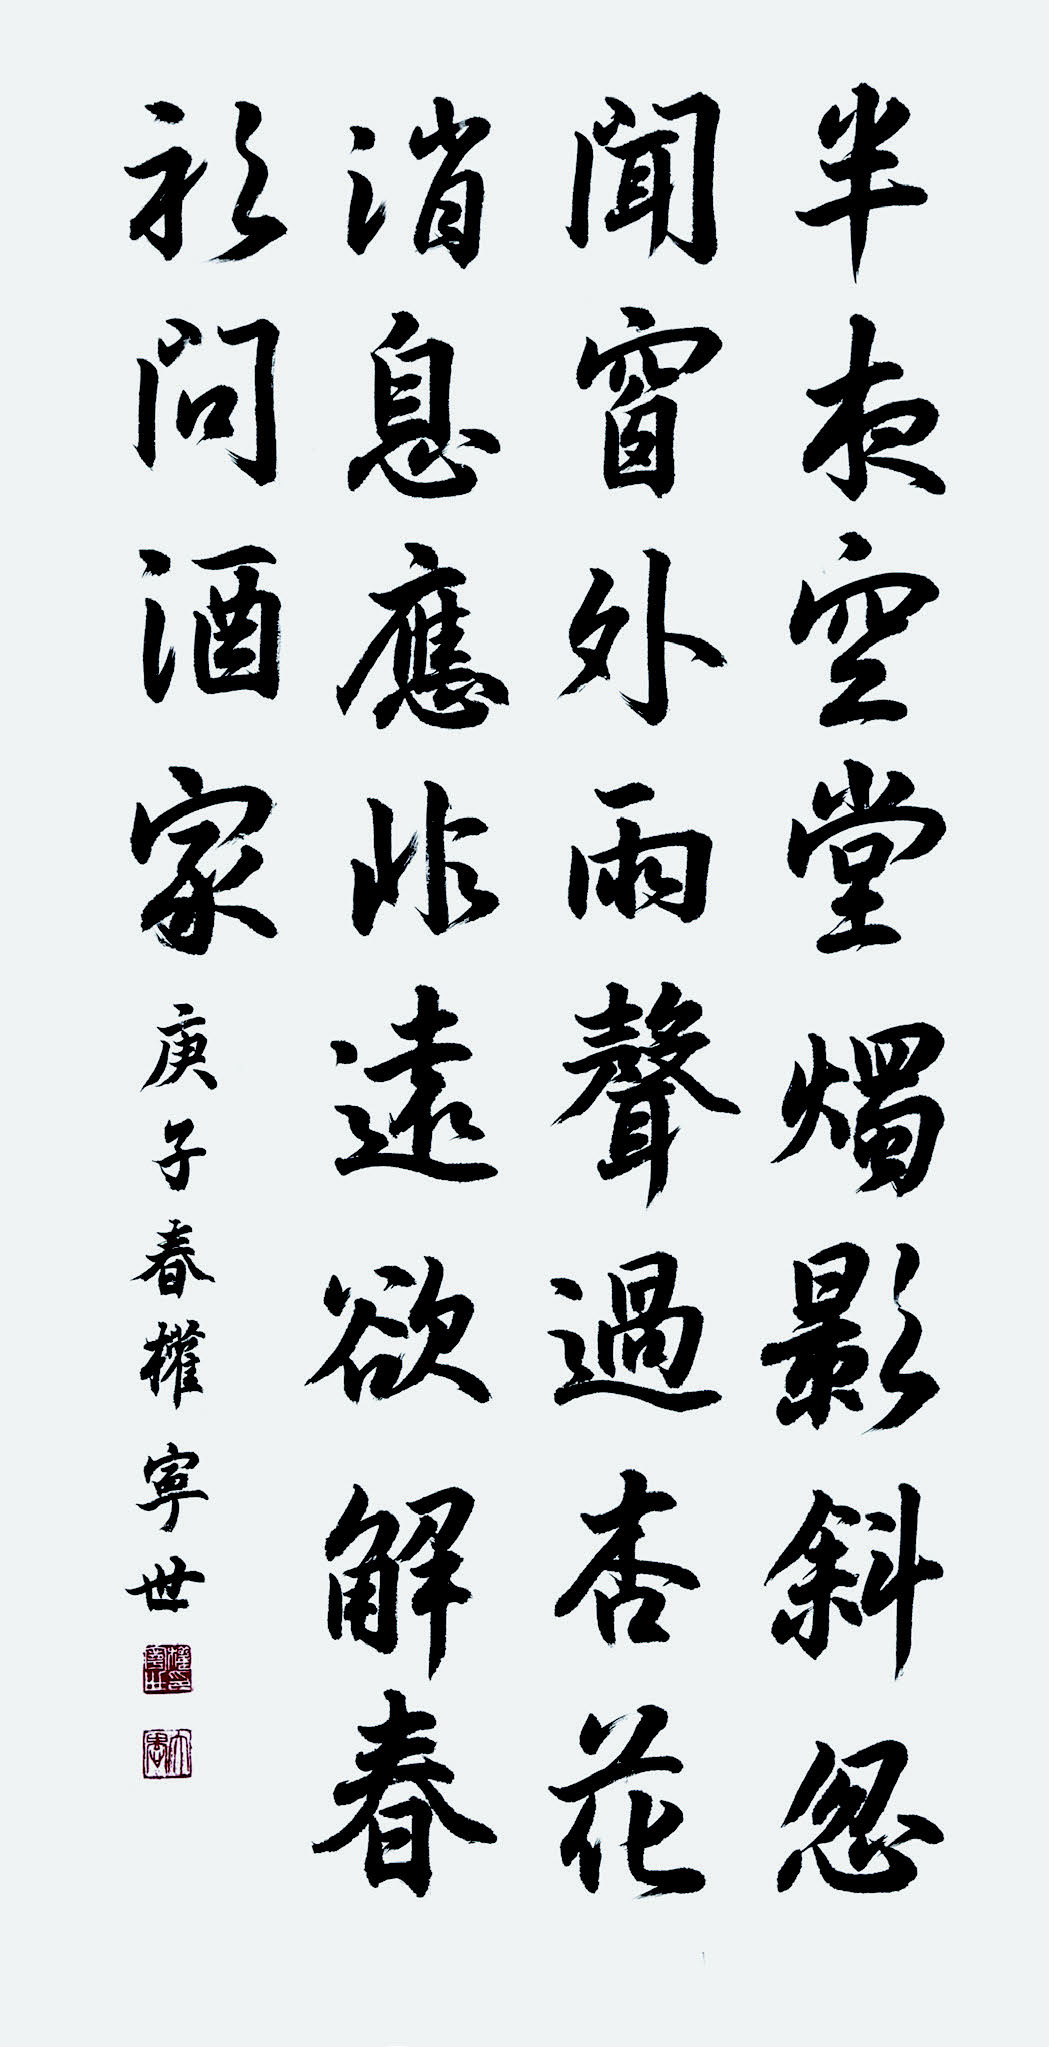 半夜空堂燭影斜忽
聞窗外雨聲過杏花
消息應非遠欲解春
衫問酒家
庚子春權寧世